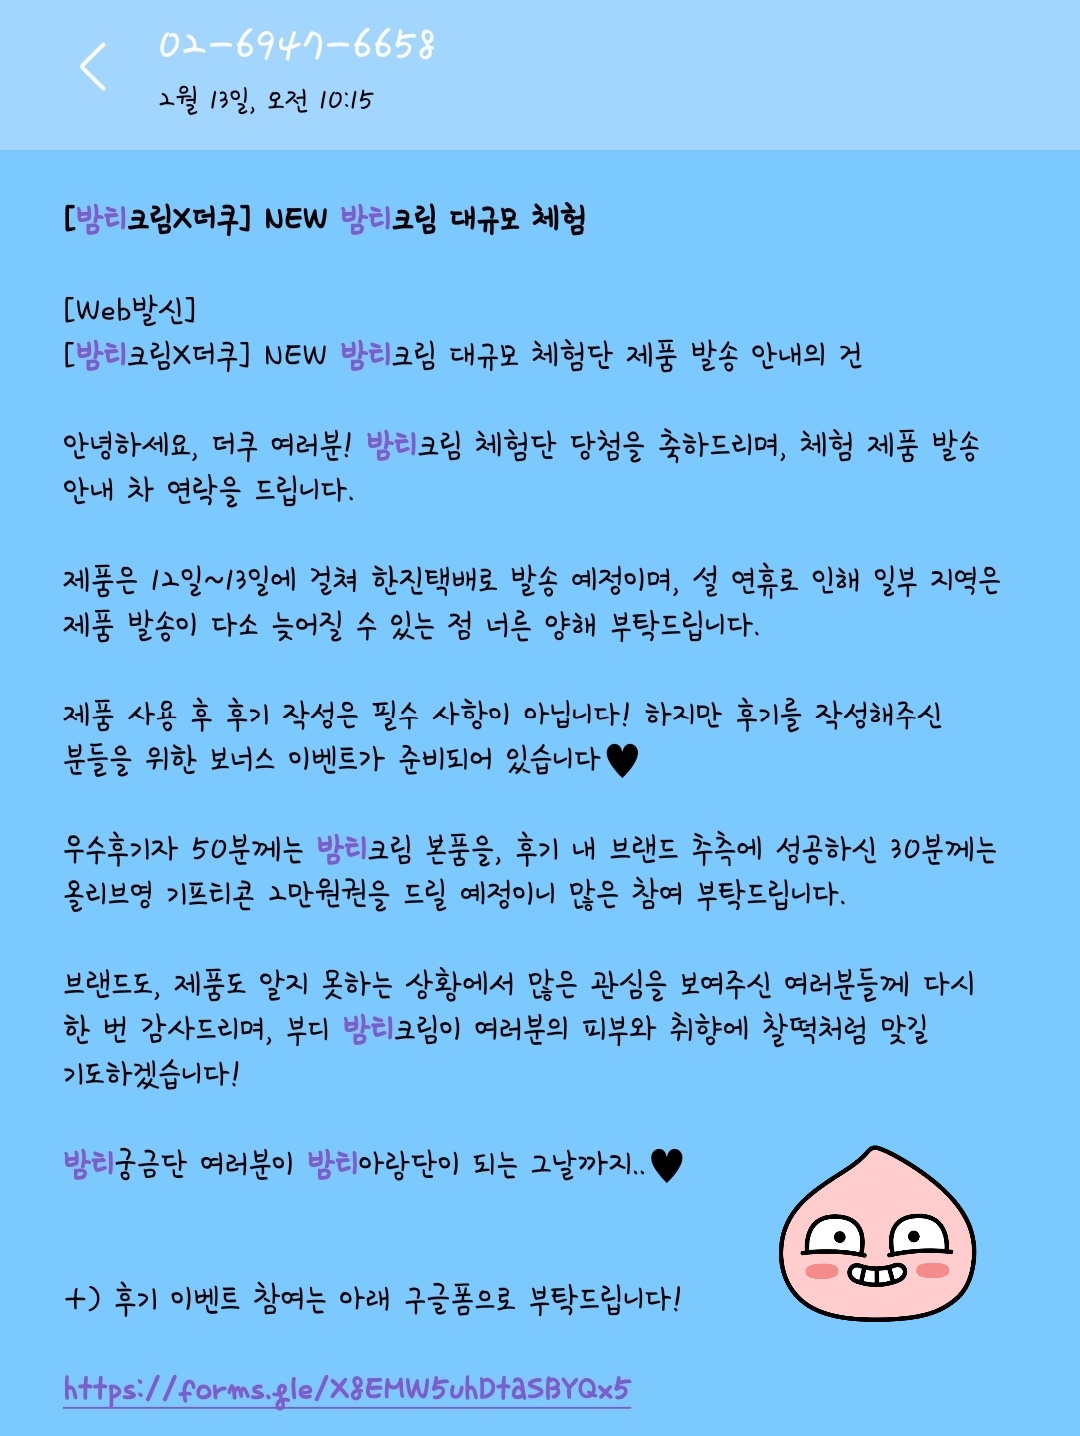 02-6947-6658
2월 13일, 오전 10:15
[밤티크림X더쿠] NEW 밤티크림 대규모 체험
[Web발신]
[밤티크림X더쿠] NEW 밤티크림 대규모 체험단 제품 발송 안내의 건
안녕하세요, 더쿠 여러분! 밤티크림 체험단 당첨을 축하드리며, 체험 제품 발송
안내 차 연락을 드립니다.
제품은 12일~13일에 걸쳐 한진택배로 발송 예정이며, 설 연휴로 인해 일부 지역은
제품 발송이 다소 늦어질 수 있는 점 너른 양해 부탁드립니다.
제품 사용 후 후기 작성은 필수 사항이 아닙니다! 하지만 후기를 작성해주신
분들을 위한 보너스 이벤트가 준비되어 있습니다♥
우수후기자 50분께는 밤티크림 본품을, 후기 내 브랜드 추측에 성공하신 30분께는
올리브영 기프티콘 2만원권을 드릴 예정이니 많은 참여 부탁드립니다.
브랜드도, 제품도 알지 못하는 상황에서 많은 관심을 보여주신 여러분들께 다시
한 번 감사드리며, 부디 밤티크림이 여러분의 피부와 취향에 찰떡처럼 맞길
기도하겠습니다!
밤티궁금단 여러분이 밤티아랑단이 되는 그날까지..♥
+) 후기 이벤트 참여는 아래 구글폼으로 부탁드립니다!
https://forms.gle/X8EMW5uhDtaSBYQx5